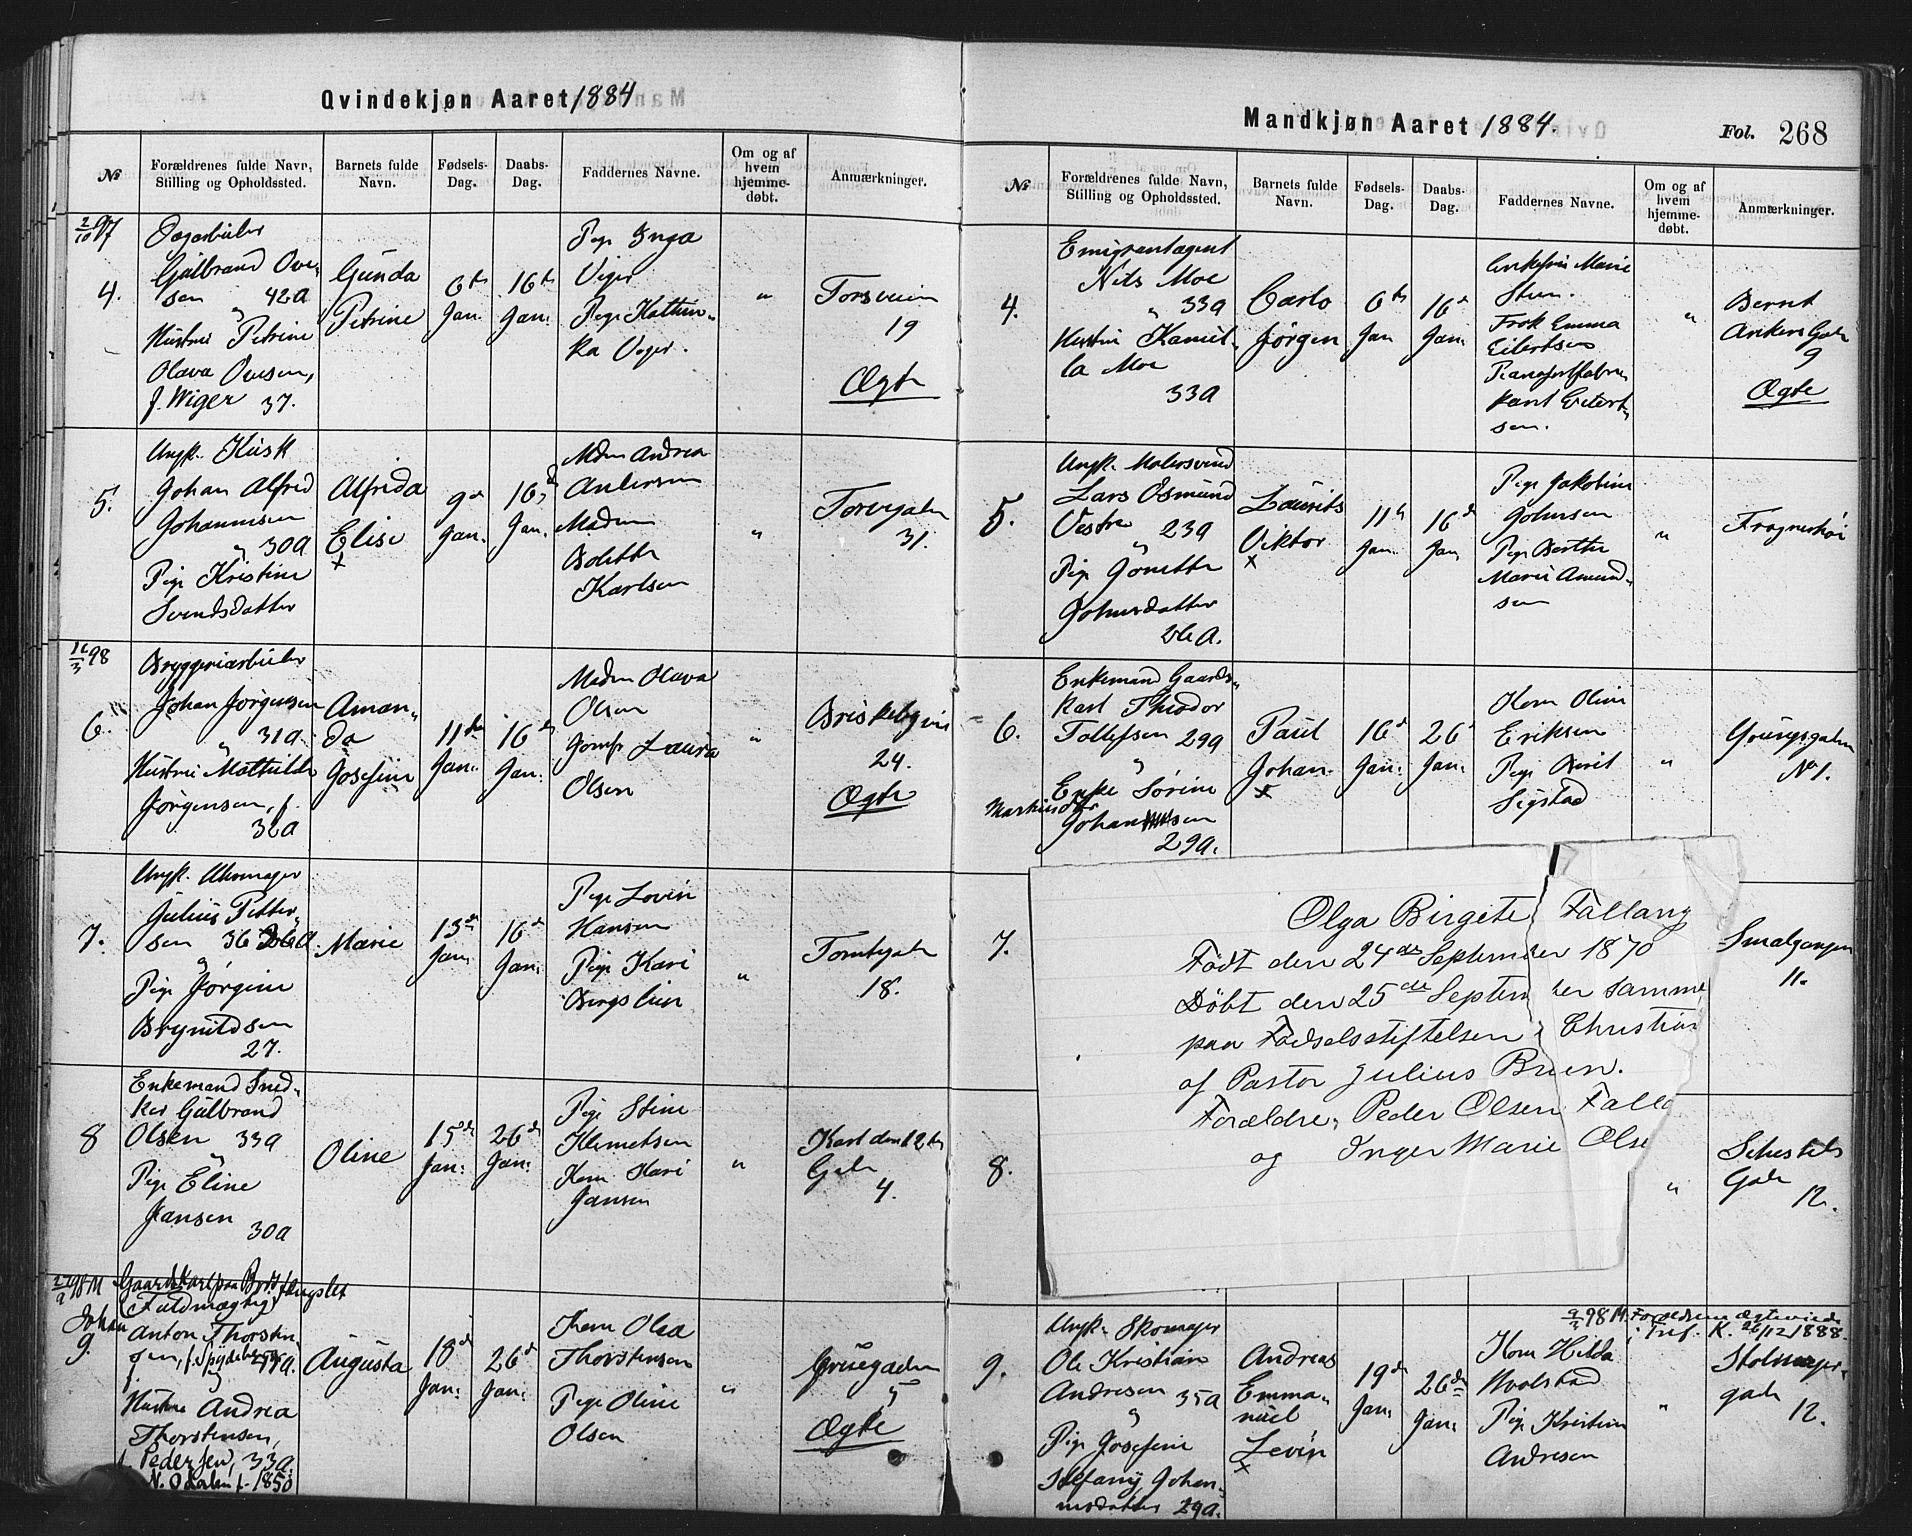 Qvindekjøn Aaret 1884
№
Forældrenes fulde Navn,
Stilling og Opholdssted.
Barnets fulde
Navn.
Fødsels-
Dag.
Daabs-
Dag.
Faddernes Navne.
Om og af
hvem
hjemme-
døbt.
Anmærkninger.
4.
Gulbrand Ove-
sen 42a
Hustru Petrine
Olava Ovesen,
f. Wiger 37.
Gunda
Petrine
6te
Jan.
16de
Jan.
Pige Inga
Viger
Pige Kathin-
ka Viger.
"
Torsveien
19
Ægte
5.
Ungk. Kusk
Johan Alfred
Johannesen
30a
Pige Kristine
Svendsdatter
Alfrida
Elise
x
9de
Jan.
16de
Jan.
Mdm Andrea
Andersen
Madm
Bolette
Karlsen
"
Torvegaten
31.
98
6.
Bryggeriarbeider
Johan Jørgensen
31a
Hustru Mathilde
Jørgensen, f.
32a
Aman-
da
Josefine
11te
Jan.
16de
Jan.
Madm Olava
Olsen
Jomfr Laura
Olsen
"
Briskebyvei
24.
Ægte
7.
Ungk. Uhrmager
Julius Petter-
sen 36
Pige Jørgine
Brynildsen
27.
Marie
13de
Jan.
16de
Jan.
Pige Lovise
Hansen
Pige Kari
Bergslien
"
Tomtegaten
18.
8
Enkemand Sned-
ker Gulbrand
Olsen 33a
Pige Eline
Jansen
30a
Oline
15de
Jan.
26de
Jan.
Pige Stine
Klemetsen
Kone Kari
Jansen
"
Karl den 12tes
Gade
4.
Johan
9.
(Fuldmægtig)
Anton Thorsten-
sen, f. Spydeberg
Hustru Andrea
Thorstensen,
f. Pedersen, 33a.
1850
Augusta
18de
Jan.
26de
Jan.
Kone Olea
Thorstensen
Pige Oline
Olsen
"
Grusegaden
5
Ægte
Mandkjøn Aaret 1884.
Fol. 268
№
Forældrenes fulde Navn,
Stilling og Opholdssted.
Barnets fulde
Navn.
Fødsels-
Dag.
Daabs-
Dag.
Faddernes Navne.
Om og af
hvem
hjemme-
døbt.
Anmærkninger.
4.
Emigrantagent
Nils Moe
33a
Hustru Kamil-
la Moe
33a
Carlo
Jørgen
6te
Jan
16de
Jan.
Enkefru Marie
Steen.
Frøk Emma
Eilertsen
Pianofortefabri-
kant Eilert-
sen.
"
Bernt
Ankers Gade
9
Ægte
5.
Ungk. Malersvend
Lars Osmund
Vestre 23a
Pige Gonette
Johnsdatter
26a.
Laurits
Viktor
x
11te
Jan.
16de
Jan.
Pige Jakobine
Johnsen
Pige Berthe
Marie Amund-
sen
"
Frognerhøi
6.
Enkemand Gaards-
karl Theodor
Tollefsen 29a
Enke Sørine
Johansen
29a.
Paul
Johan.
x
16de
Jan.
26de
Jan.
Kone Oline
Eriksen
Pige Berit
Sigstad
"
Youngsgaten
No 1.
7.
Olga Birgete Fallang
Født den 24de September 1870
Døbt den 25de September samme
paa Fødselsstiftelsen i Christian
af Pastor Julius Bruun.
Forældre, Peder Olsen Falla
og Inger Marie Olse
Smalgangen
11.
8.
"
Schestels
Gade
12.
9.
Ungk. Skomager
Ole Kristian
Andresen 35a
Pige Josefine
Stefany Johan-
nesdatter 29a.
Andreas
Emma-
nuel
Levin
x
19de
Jan.
26de
Jan.
Kone Hilda
Hvalstad
Pige Kristine
Andresen
"
Forældrene Ægteviede
i Tref. K. 26/12 1888.
Stolmager-
gade
12.